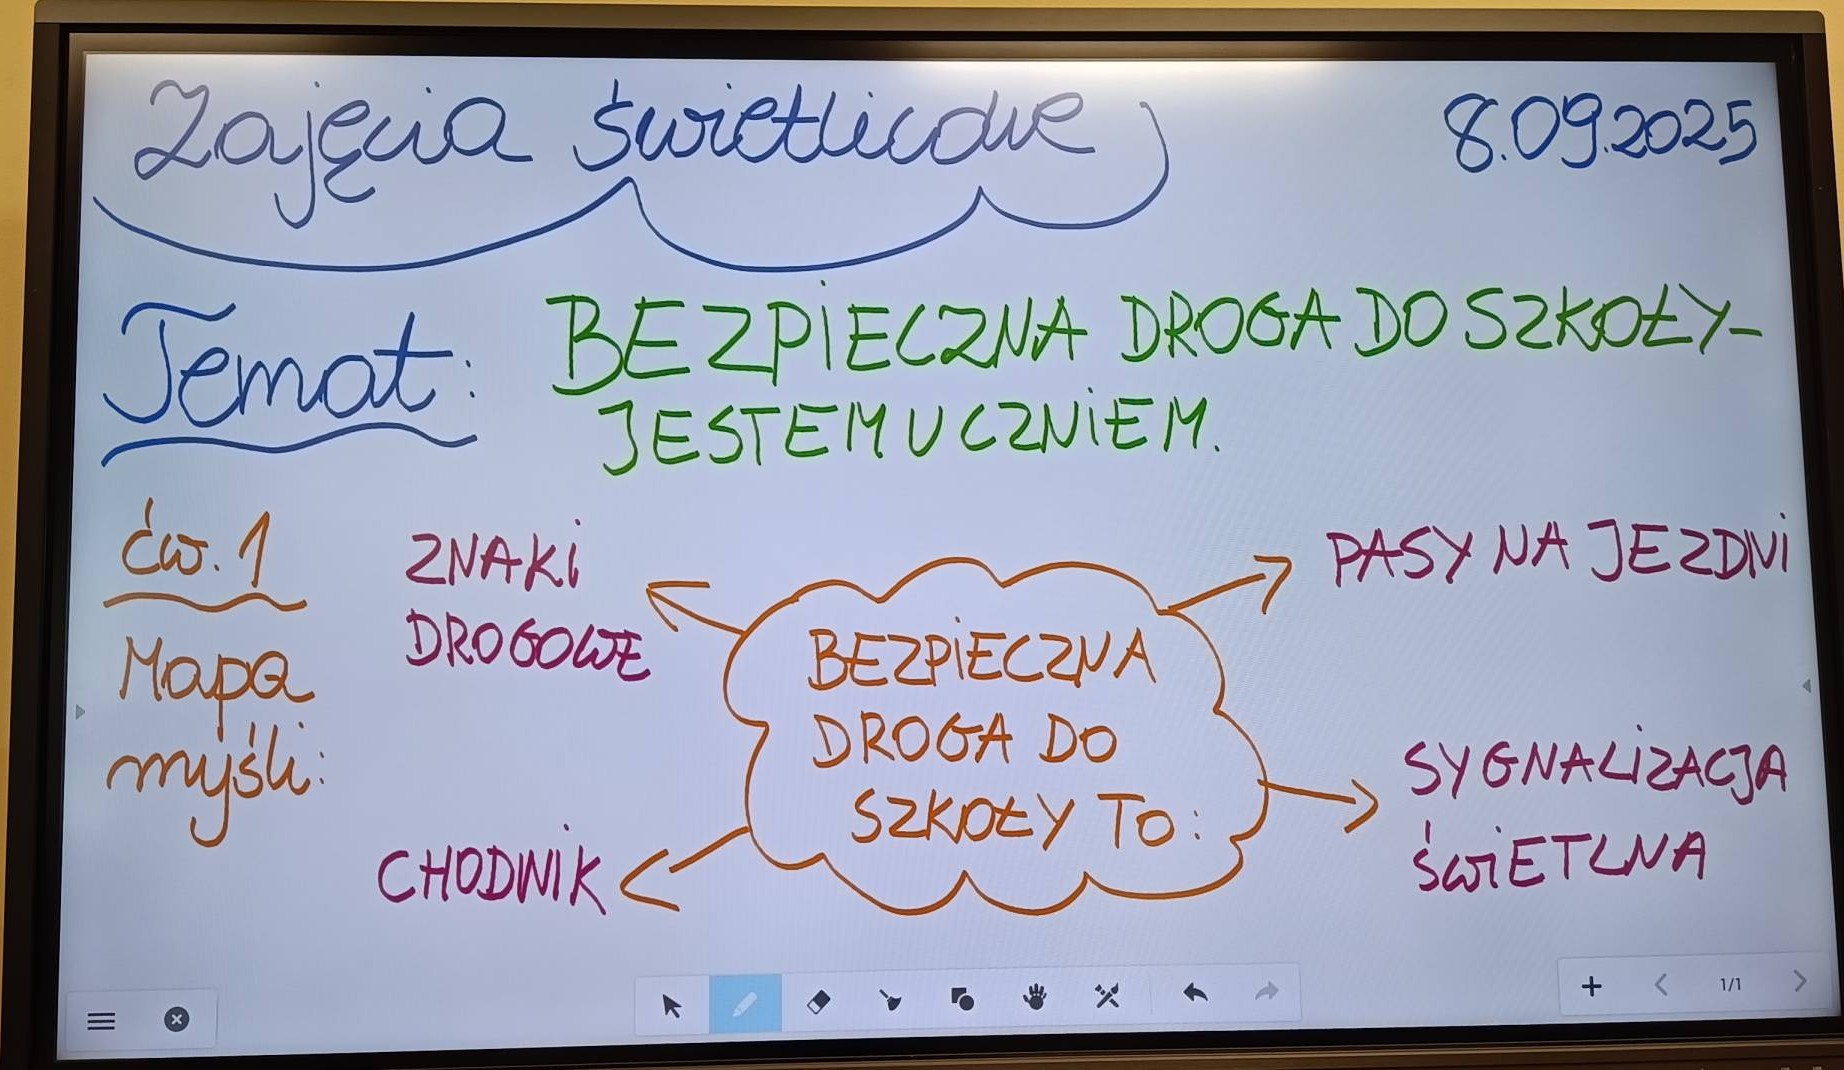 Zajęcia świetlicowe
8.09.2025
Temat: BEZPIECZNA DROGA DO SZKOŁY-
JESTEM UCZNIEM.
ćw. 1
Mapa
myśli:
ZNAKI
DROGOWE
PASY NA JEZDNI
BEZPIECZNA
DROGA DO
SZKOŁY TO:
SYGNALIZACJA
ŚWIETLNA
CHODNIK
1/1